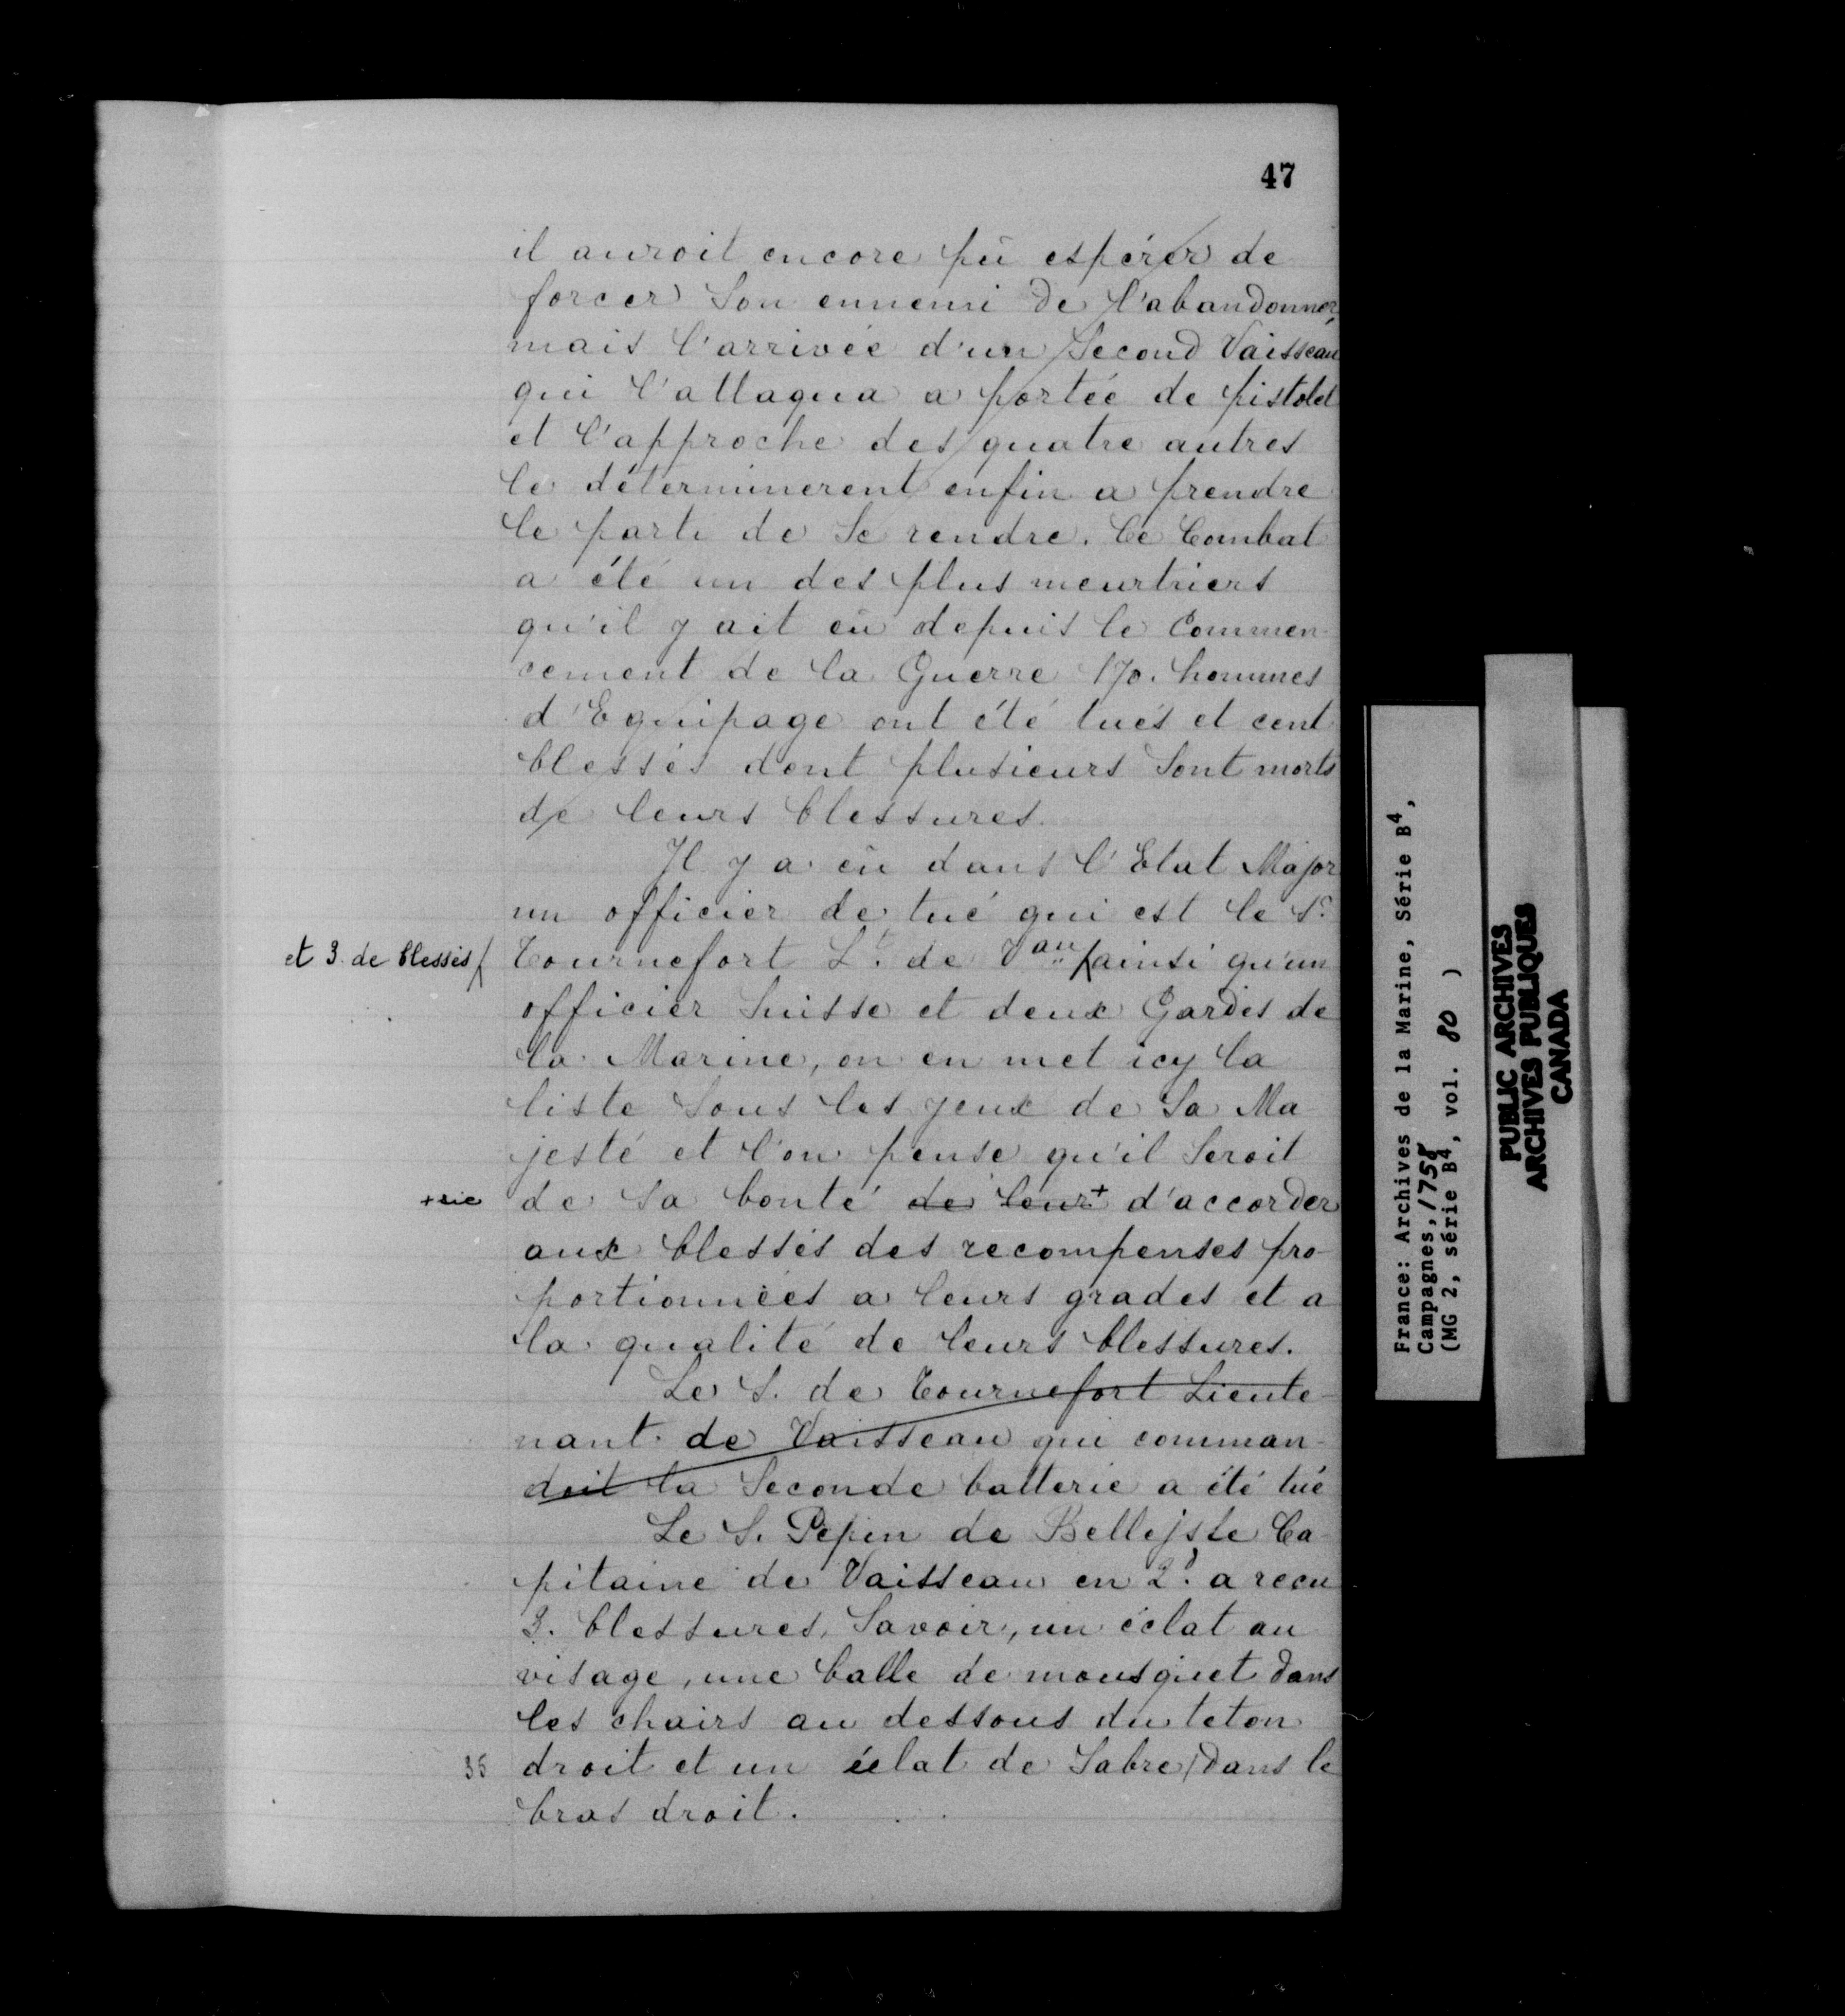 47
il auroit encore pû espérer de
forcer Son ennemi de l'abandonner,
mais l'arrivée d'un Second Vaisseau
qui l'attaqua a portée de pistolet
et l'approche des quatre autres
le déterminerent enfin a prendre
le parti de Se rendre. Ce Combat
a été un des plus meurtriers
qu'il y ait eû depuis le Commen-
cement de la Guerre 170. hommes
d'Equipage ont été tués et cent
blessés dont plusieurs Sont morts
de leurs blessures.
Il y a eû dans l'Etat Major
un officier de tué qui est le Sr.
et 3. de blessés/ Tournefort Lt. de Vau /ainsi qu'un
officier Suisse et deux Gardes de
la Marine, on en met icy la
liste Sous les yeux de Sa Ma
jesté et l'on pense qu'il Seroit
+sic de Sa bonté de leur+ d'accorder
aux blessés des recompenses pro-
portionnées a leurs grades et a
la qualité de leurs blessures.
Le S. de Tournefort Liente-
nant de Vaisseau qui comman-
doit la Seconde batterie a été tué
Le S. Pepin de Bellejsle Ca-
pitaine de Vaisseau en 2d. a recu
3. blessures, Savoir, un éclat au
visage, une balle de mousquet dans
les chairs au dessous du teton
35 droit et un éclat de Sabre dans le
bras droit.
France: Archives de la Marine, Série B4,
Campagnes, 1758
(MG 2, série B4, vol. 80 )
PUBLIC ARCHIVES
ARCHIVES PUBLIQUES
CANADA